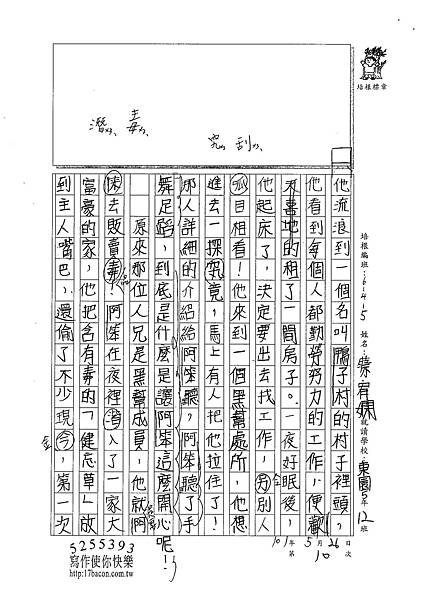 潛 毒 究 刮
培根標章
培根編班：645 姓名：
就讀學校 東園5年12班
101年5月26日
第10次
他流浪到一個名叫騙子村的村子裡頭，
他看到每個人都勤勞努力的工作，便歡
天喜地的租了一間房子。一夜好眠後，
他起床了，決定要出去找工作，別人
刮目相看！他來到一個黑幫處所，他想
進去一探究竟，馬上有人把他拉住了！
那人詳細的介紹給阿笨聽，阿笨聽了手
舞足蹈，到底是什麼是讓阿笨這麼開心呢！
原來那位人兄是黑幫成員，他就
去販賣毒！阿笨在夜裡潛入了一家大
富豪的家，他把含有毒的「健忘草」放
到主人嘴巴，還偷了不少現今，第一次
金
5255393
寫作使你快樂
http://17bacon.com.tw/